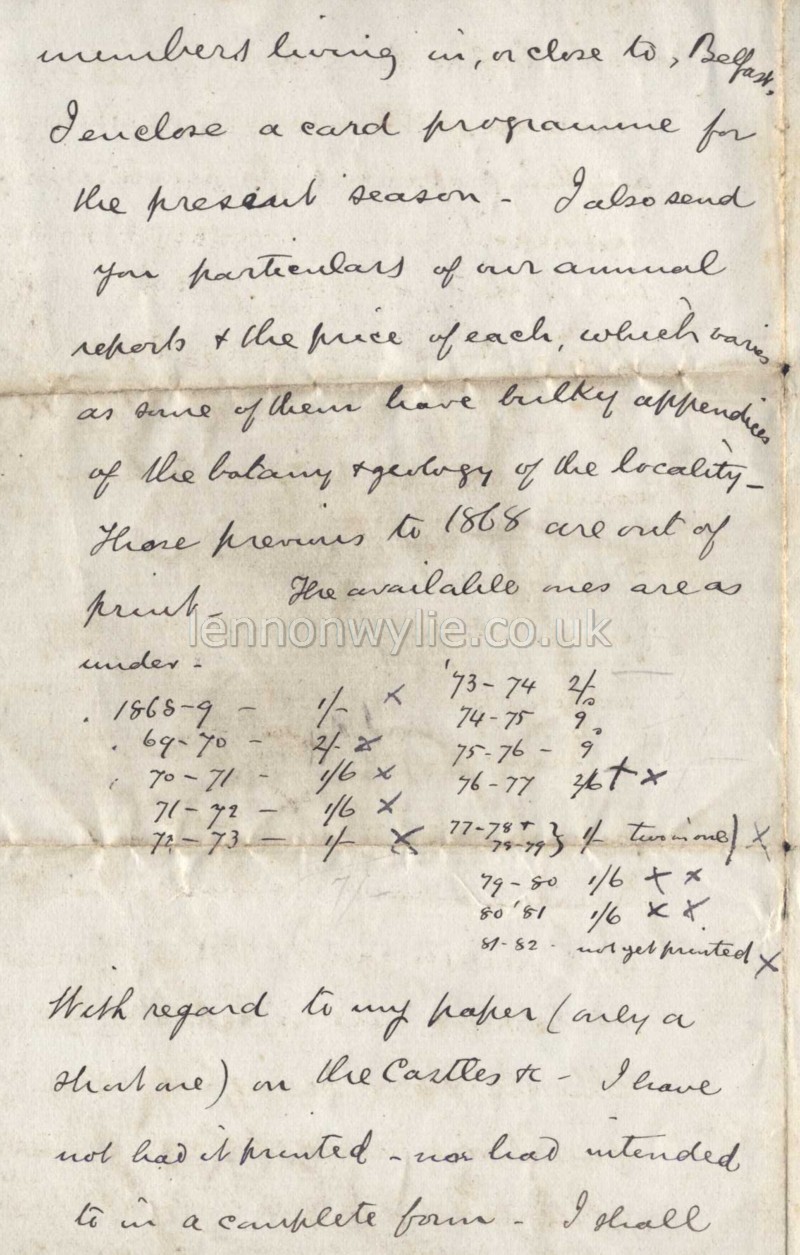 members living in, or close to, Belfast.
I enclose a card programme for
the present season - I also send
you particulars of our annual
reports & the price of each, which varies
as some of them have bulky appendices
of the botany & geology of the locality -
Those previous to 1868 are out of
print - The available ones are as
lennonwylie.co.uk
under -
1868-9 - 1/- x
69-70 - 2/- x
70-71 - 1/6 x
71-72 - 1/6 x
72-73 - 1/- x
'73-74 2/-
74-75 9
75-76 - 9
76-77 2/6 + x
77-78 +
78-79 } 1/- two in one) x
79-80 1/6 x x
80'81 1/6 x x
81-82 - not yet printed x
With regard to my paper (only a
short one) on the Castles &c - I have
not had it printed - nor had intended
to in a complete form - I shall